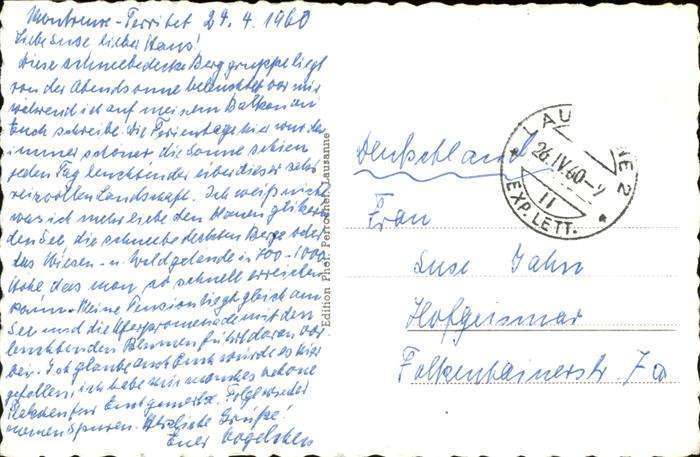 Montreux-Territet 24.4.1960
Liebe Suse, lieber Hans!
Diese schneebedeckte Berggruppe liegt
von der Abendsonne beleuchtet vor mir
während ich auf meinem Balkon an
Euch schreibe. Die Ferientage hier wurden
immer schöner die Sonne schien
jeden Tag leuchtender über dieser sehr
reizvollen Landschaft. Ich weiß nicht
was ich mehr liebe den blauen
den See, die schneebedeckten Berge oder
das Wiesen- u. Waldgelände in 700-1000
Höhe das man so schnell erreichen
kann. Meine Pension liegt gleich am
See und die Uferpromenade mit den
leuchtenden Blumen führt daran vor-
bei. Ich glaube auch Euch würde es hier
gefallen, ich habe mir manches schöne
Plätzchen für Euch gemerkt. Folgt
meinen Spuren. Herzliche Grüße!
Euer
Edition Phot. Perrochet, Lausanne
LAU NE 2
26.IV.60-9
11
EXP. LETT.
Deutschland
Frau
Suse Jahn
Hofgeismar
Falkenhainerstr 7a